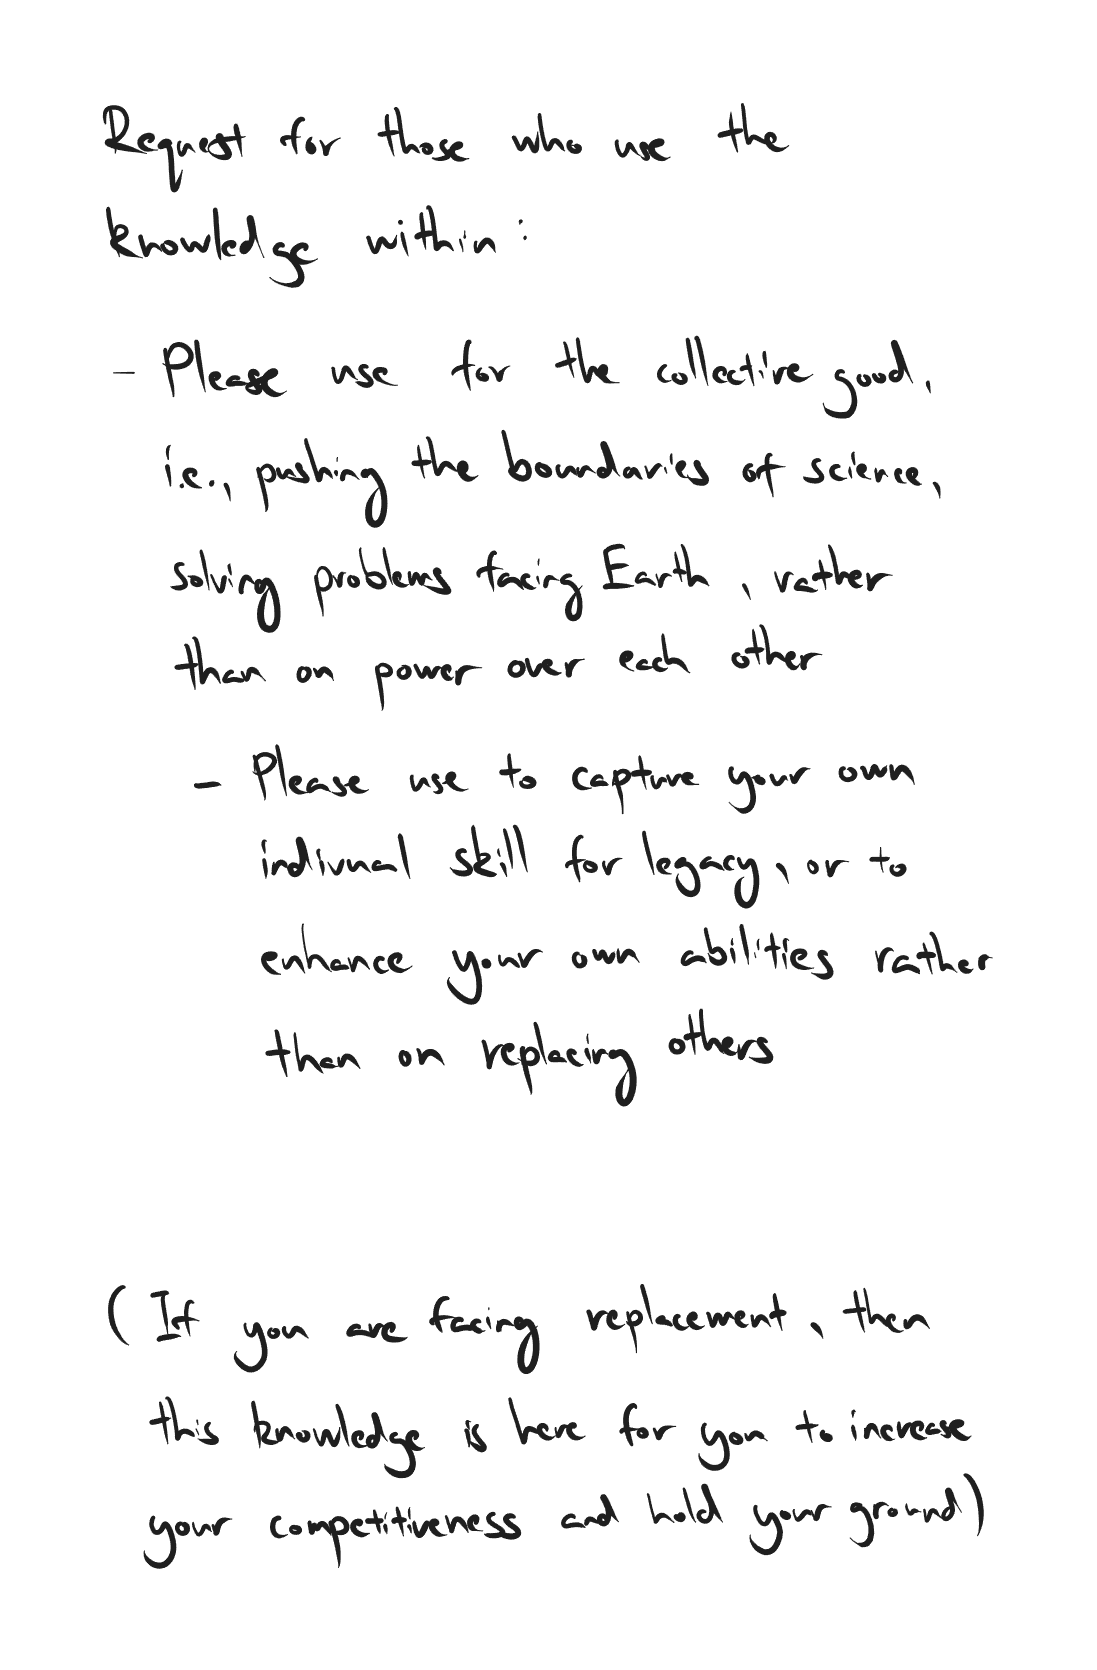 Request for those who use the
knowledge within:
- Please use for the collective good,
i.e., pushing the boundaries of science,
solving problems facing Earth, rather
than on power over each other
- Please use to capture your own
indivual skill for legacy, or to
enhance your own abilities rather
than on replacing others
(If you are facing replacement, then
this knowledge is here for you to increase
your competitiveness and hold your ground)